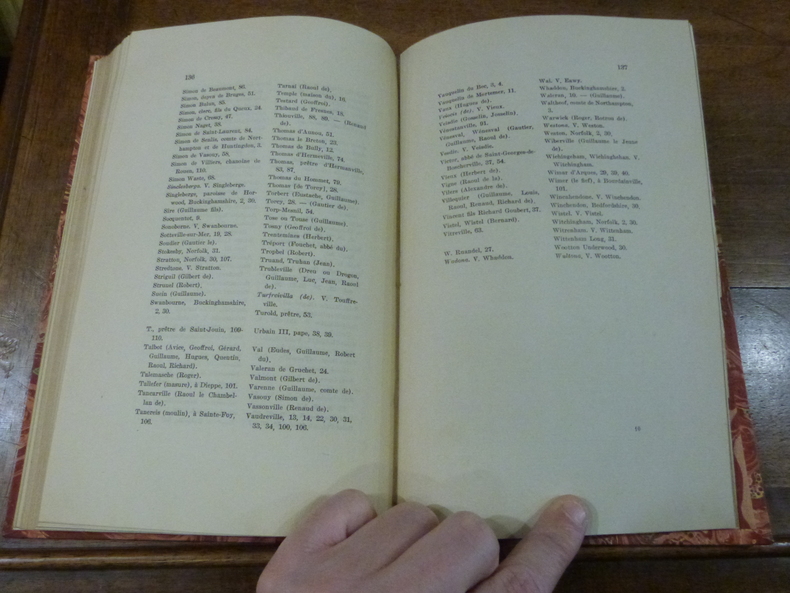 136
Simon de Beaumont, 90.
Simon, doyen de Bruges, 51.
Simon Buion, 86.
Simon, clerc, fils du Queux, 34.
Simon de Cremy, 47.
Simon Naget, 38.
Simon de Saint-Laurent, 84.
Simon de Senlis, comte de Northampton et de Huntingdon, 5.
Simon de Vassony, 59.
Simon de Villiers, chanoine de Rouen, 110.
Simon Waste, 68.
Sincleberge. V. Singleberge.
Singleberge, paroisse de Horwood, Buckinghamshire, 2, 30.
Sire (Guillaume file).
Socquentot, 8.
Soneborne. V. Swanbourne.
Sotteville-sur-Mer, 19, 28.
Soudier (Gautier le).
Stokesby, Norfolk, 31.
Stratton, Norfolk, 30, 107.
Stredham. V. Stratton.
Striguil (Gilbert de).
Strussel (Robert).
Suein (Guillaume).
Swanbourne, Buckinghamshire,
2, 30.
T., prêtre de Saint-Jouin, 109-
110.
Talbot (Avice, Geoffroi, Gérard,
Guillaume, Hugues, Quentin,
Raoul, Richard).
Talemasche (Roger).
Tallefer (masure), à Dieppe, 101.
Tancarville (Raoul le Chambellan de).
Tanereis (moulin), à Sainte-Foy,
106.
Tarnai (Raoul de).
Temple (maison du), 10.
Testard (Geoffroi).
Thibaud de Fresnes, 15.
Thiouville, 86, 88. — (Richard
de).
Thomas d'Annou, 51.
Thomas le Breton, 23.
Thomas de Builly, 12.
Thomas d'Hermeville, 74.
Thomas, prêtre d'Hermanville,
83, 87.
Thomas du Hommet, 79.
Thomas [de Tony], 28.
Torbert (Eustache, Guillaume).
Torcy, 28. — (Gautier de).
Torp-Mesnil, 54.
Tose ou Touse (Guillaume).
Tosny (Geoffroi de).
Trentemines (Herbert).
Tréport (Foucher, abbé du).
Trophel (Robert).
Truand, Truhan (Jean).
Trubleville (Dreu ou Drogon,
Guillaume, Luc, Jean, Raoul
de).
Turfreivilla (de). V. Touffreville.
Turold, prêtre, 53.
Urbain III, pape, 38, 39.
Val (Eudes, Guillaume, Robert
du).
Valeran de Gruchet, 24.
Valmont (Gilbert de).
Varenne (Guillaume, comte de).
Vascny (Simon de).
Vassonville (Renaud de).
Vaudreville, 13, 14, 22, 30, 31,
33, 34, 100, 106.
137
Vauquelin du Bec, 3, 4.
Vauquelin de Mortemer, 11.
Vaux (Hugues de).
Veisin (de). V. Vieux.
Voisin (Gosselin, Josselin)
Vimontanville, 81.
Véneral, Wéneral (Gautier,
Guillaume, Raoul de).
Vesdin. V. Voisin.
Victor, abbé de Saint-Georges-de-Boscherville, 27, 54.
Vieux (Herbert de).
Vigne (Raoul de la).
Vilers (Alexandre de).
Villequier (Guillaume, Louis,
Raoul, Renaud, Richard de).
Vincent fils Richard Goubert, 27.
Vistel, Wistel (Bernard).
Vitreville, 63.
W. Ruandel, 27.
Wadona. V. Whaddon.
Wal. V. Eawy.
Whaddon, Buckinghamshire, 2.
Waleran, 10. — (Guillaume).
Waltheof, comte de Northampton,
5.
Warwick (Roger, Rotrou de).
Westona. V. Weston.
Weston, Norfolk, 2, 30.
Wiberville (Guillaume le Jeune
de).
Wichingham, Wichingheham. V.
Witchingham.
Wimar d'Arques, 39, 39, 40.
Wimar (le fief), à Bourdainville,
101.
Winchendone. V. Winchendon.
Winchendon, Bedfordshire, 30.
Wistel. V. Vistel.
Witchingham, Norfolk, 2, 30.
Wittenham Long, 31.
Wootton Underwood, 30.
18